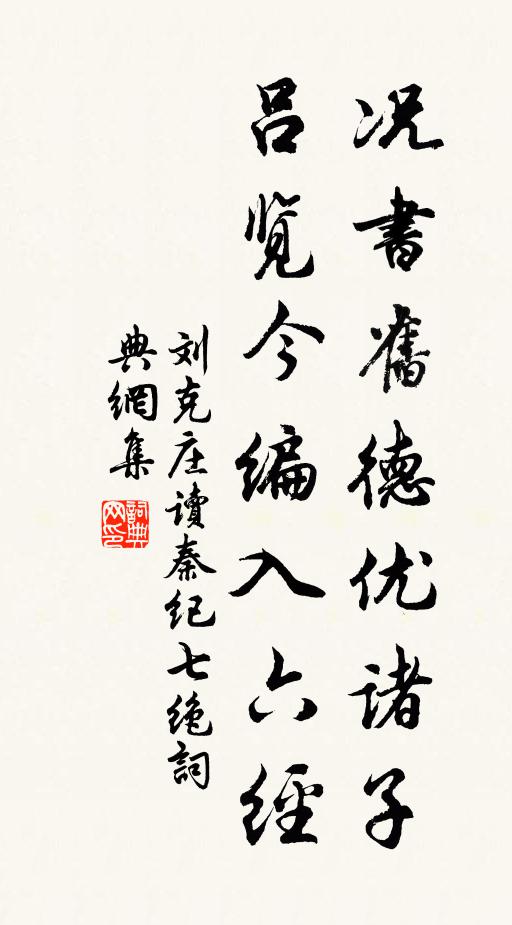 况書舊德优諸子
吕览今编入六經
刘克庄讀秦纪七绝詞
典網集
詞典网印